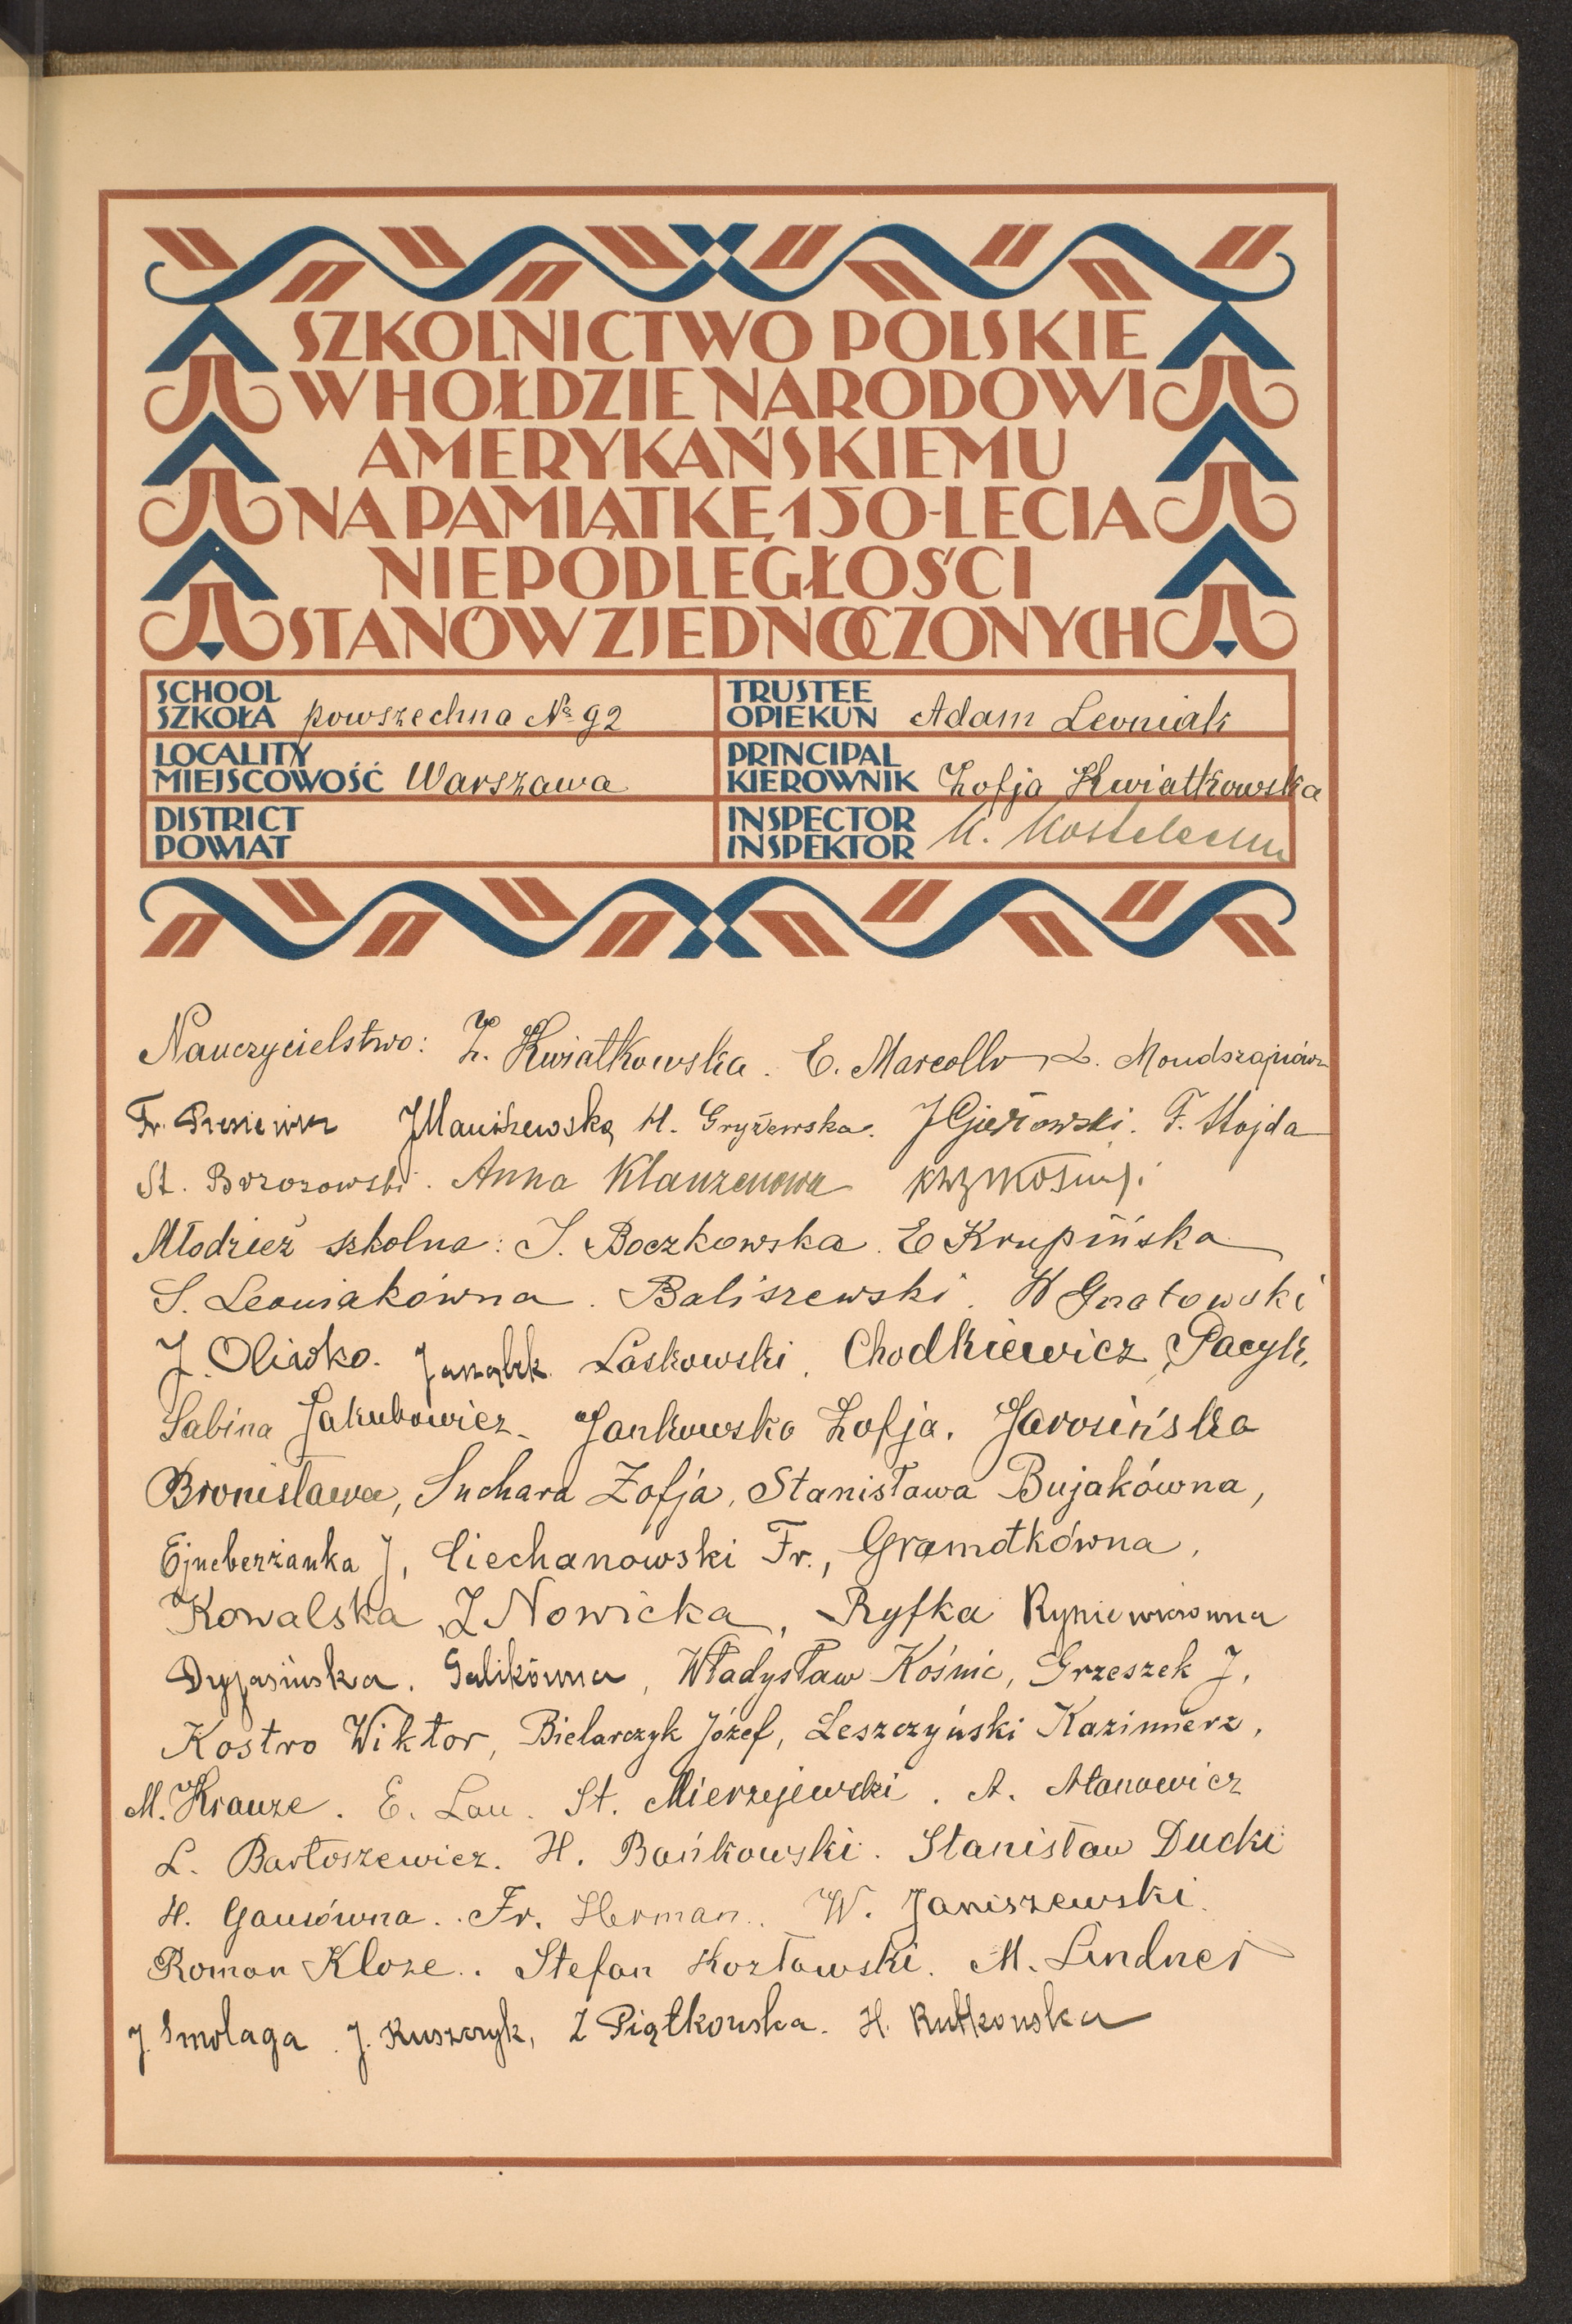 SZKOLNICTWO POLSKIE
W HOŁDZIE NARODOWI
AMERYKAŃSKIEMU
NA PAMIĄTKĘ 150-LECIA
NIEPODLEGŁOŚCI
STANÓW ZJEDNOCZONYCH
SCHOOL
SZKOŁA powszechna № 92
TRUSTEE
OPIEKUN Adam Leoniak
LOCALITY
MIEJSCOWOŚĆ Warszawa
PRINCIPAL
KIEROWNIK Zofja Kwiatkowska
DISTRICT
POWIAT
INSPECTOR
INSPEKTOR
Nauczycielstwo: Z. Kwiatkowska. E. Marcollo L.
Fr. H. Gryżewska. F. Wojda
St. Brzozowski. Anna Klauzenowa
Młodzież szkolna: J. Boczkowska. E Krupińska
S. Leoniakówna. Baliszewski. W Gnatowski
J. Oliwko. Janąbk. Laskowski. Chodkiewicz, Pacyk,
Sabina Jakubowicz. Jankowska Zofja. Jarosińska
Bronisława, Suchara Zofja, Stanisława Bujakówna,
Ejneberżanka J, Ciechanowski Fr., Gramotkówna,
Kowalska, Z Nowicka, Ryfka Ryniewiczówna
Dryjasińska. Galikówna, Władysław Kośnic, Grzeszek J,
Kostro Wiktor, Bielarczyk Józef, Leszczyński Kazimierz,
M. Krauze. E. Lau. St. Mierzejewski. A. Atanowicz
L. Bartoszewicz. H. Bańkowski. Stanisław Ducki
H. Gausówna. Fr. Herman. W. Janiszewski.
Roman Kloze. Stefan Kozłowski. M. Lindner
J. Smolaga. J. Kuszczyk, Z Piątkowska. H. Rutkowska